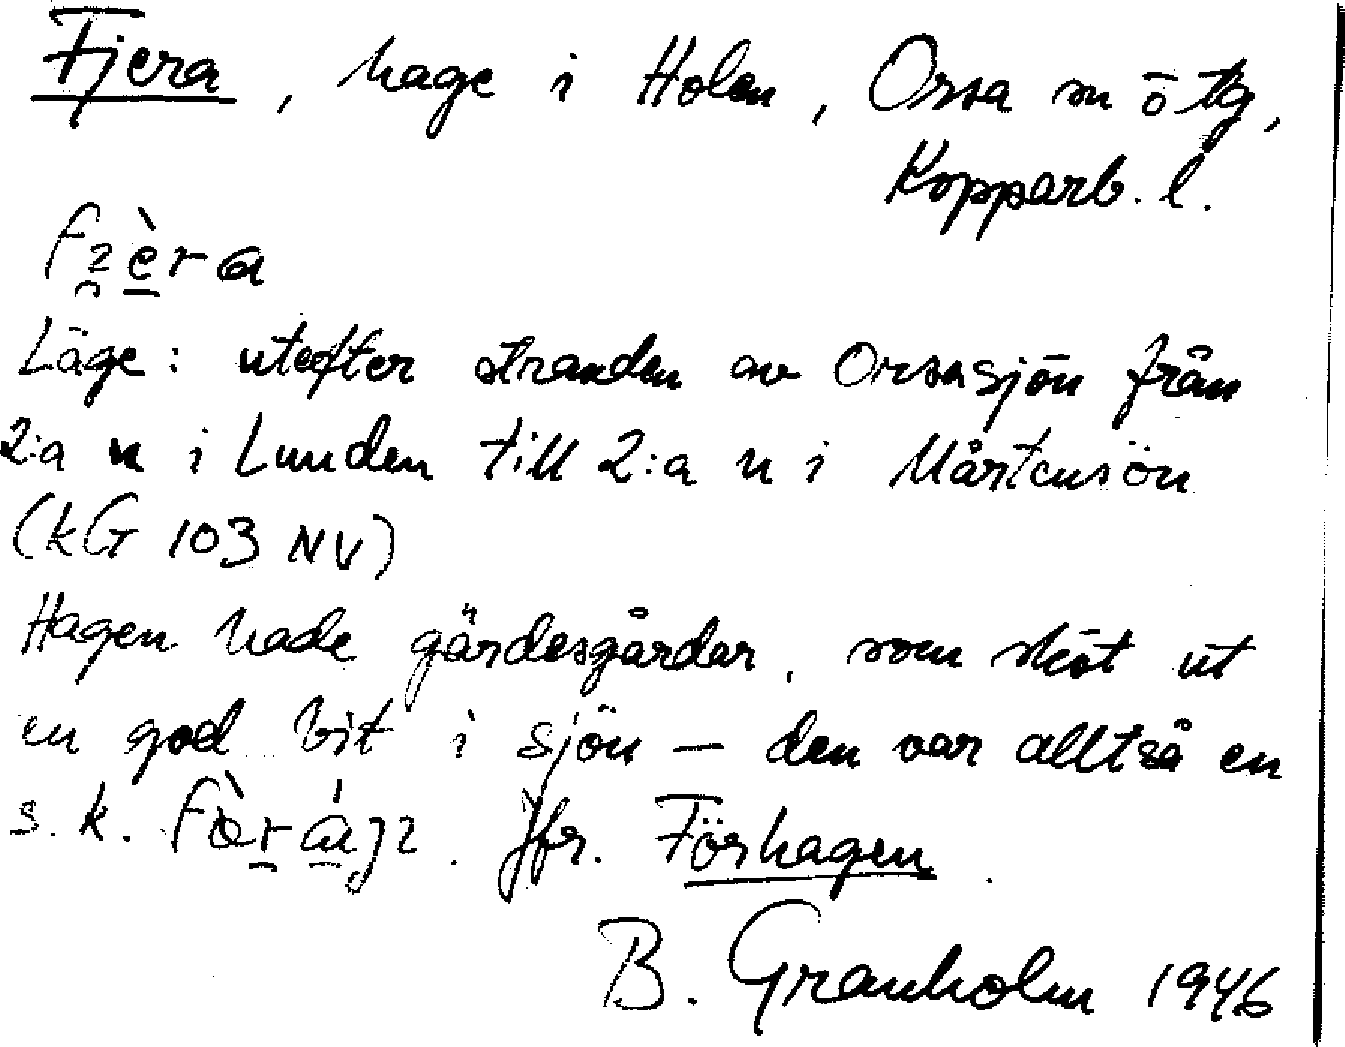 Fjera, hage i Holen, Orsa sn ö tg,
Kopparb. l.
Läge: utefter stranden av Orsasjön från
2:a n i Lunden till 2:a n i Mårtensön
(kG 103 NV)
Hagen hade gärdesgårdar, som sköt ut
en god bit i sjön – den var alltså en
s. k. Jfr. Förhagen.
B. Granholm 1946